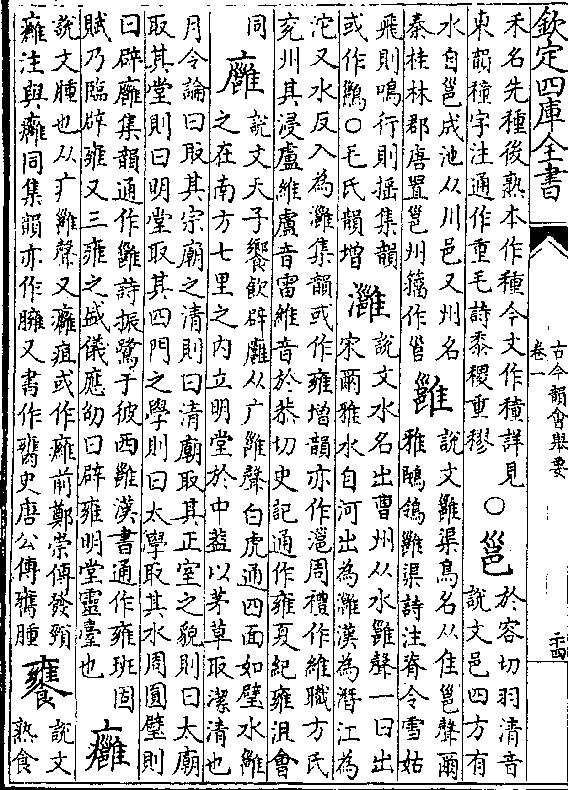 欽定四庫全書
古今韻會舉要
卷一
二十四
禾名先種後熟本作種今文作穜詳見
東韻穜字注通作重毛詩黍稷重穋
○邕
於容切羽清音
說文邕四方有
水自邕成池从川邑又州名
秦桂林郡唐置邕州籀作𡿷
雝
說文雝渠鳥名从隹邕聲爾
雅䳭鴒雝渠詩注脊令雪姑
飛則鳴行則揺集韻
或作鶲○毛氏韻增
灉
說文水名出曹州从水雝聲一曰出
宋爾雅水自河出為灉漢為潛江為
沱又水反入為灉集韻或作雍增韻亦作澭周禮作維職方氏
兖州其浸盧維盧音雷維音於恭切史記通作雍夏紀雍沮會
同
廱
說文天子饗飲辟廱从广雝聲白虎通四面如璧水雝
之在南方七里之内立明堂於中葢以茅草取潔清也
月令論曰取其宗廟之清則曰清廟取其正室之貌則曰太廟
取其堂則曰明堂取其四門之學則曰太學取其水周圓璧則
曰辟廱集韻通作雝詩振鷺于彼西雝漢書通作雍班固
賦乃臨辟雍又三雍之盛儀應劭曰辟雍明堂靈臺也
癰
說文腫也从疒雝聲又癰疽或作癕前鄭崇傳發頸
癕注與癰同集韻亦作臃又書作史唐公傳腫
饔
說文
熟食